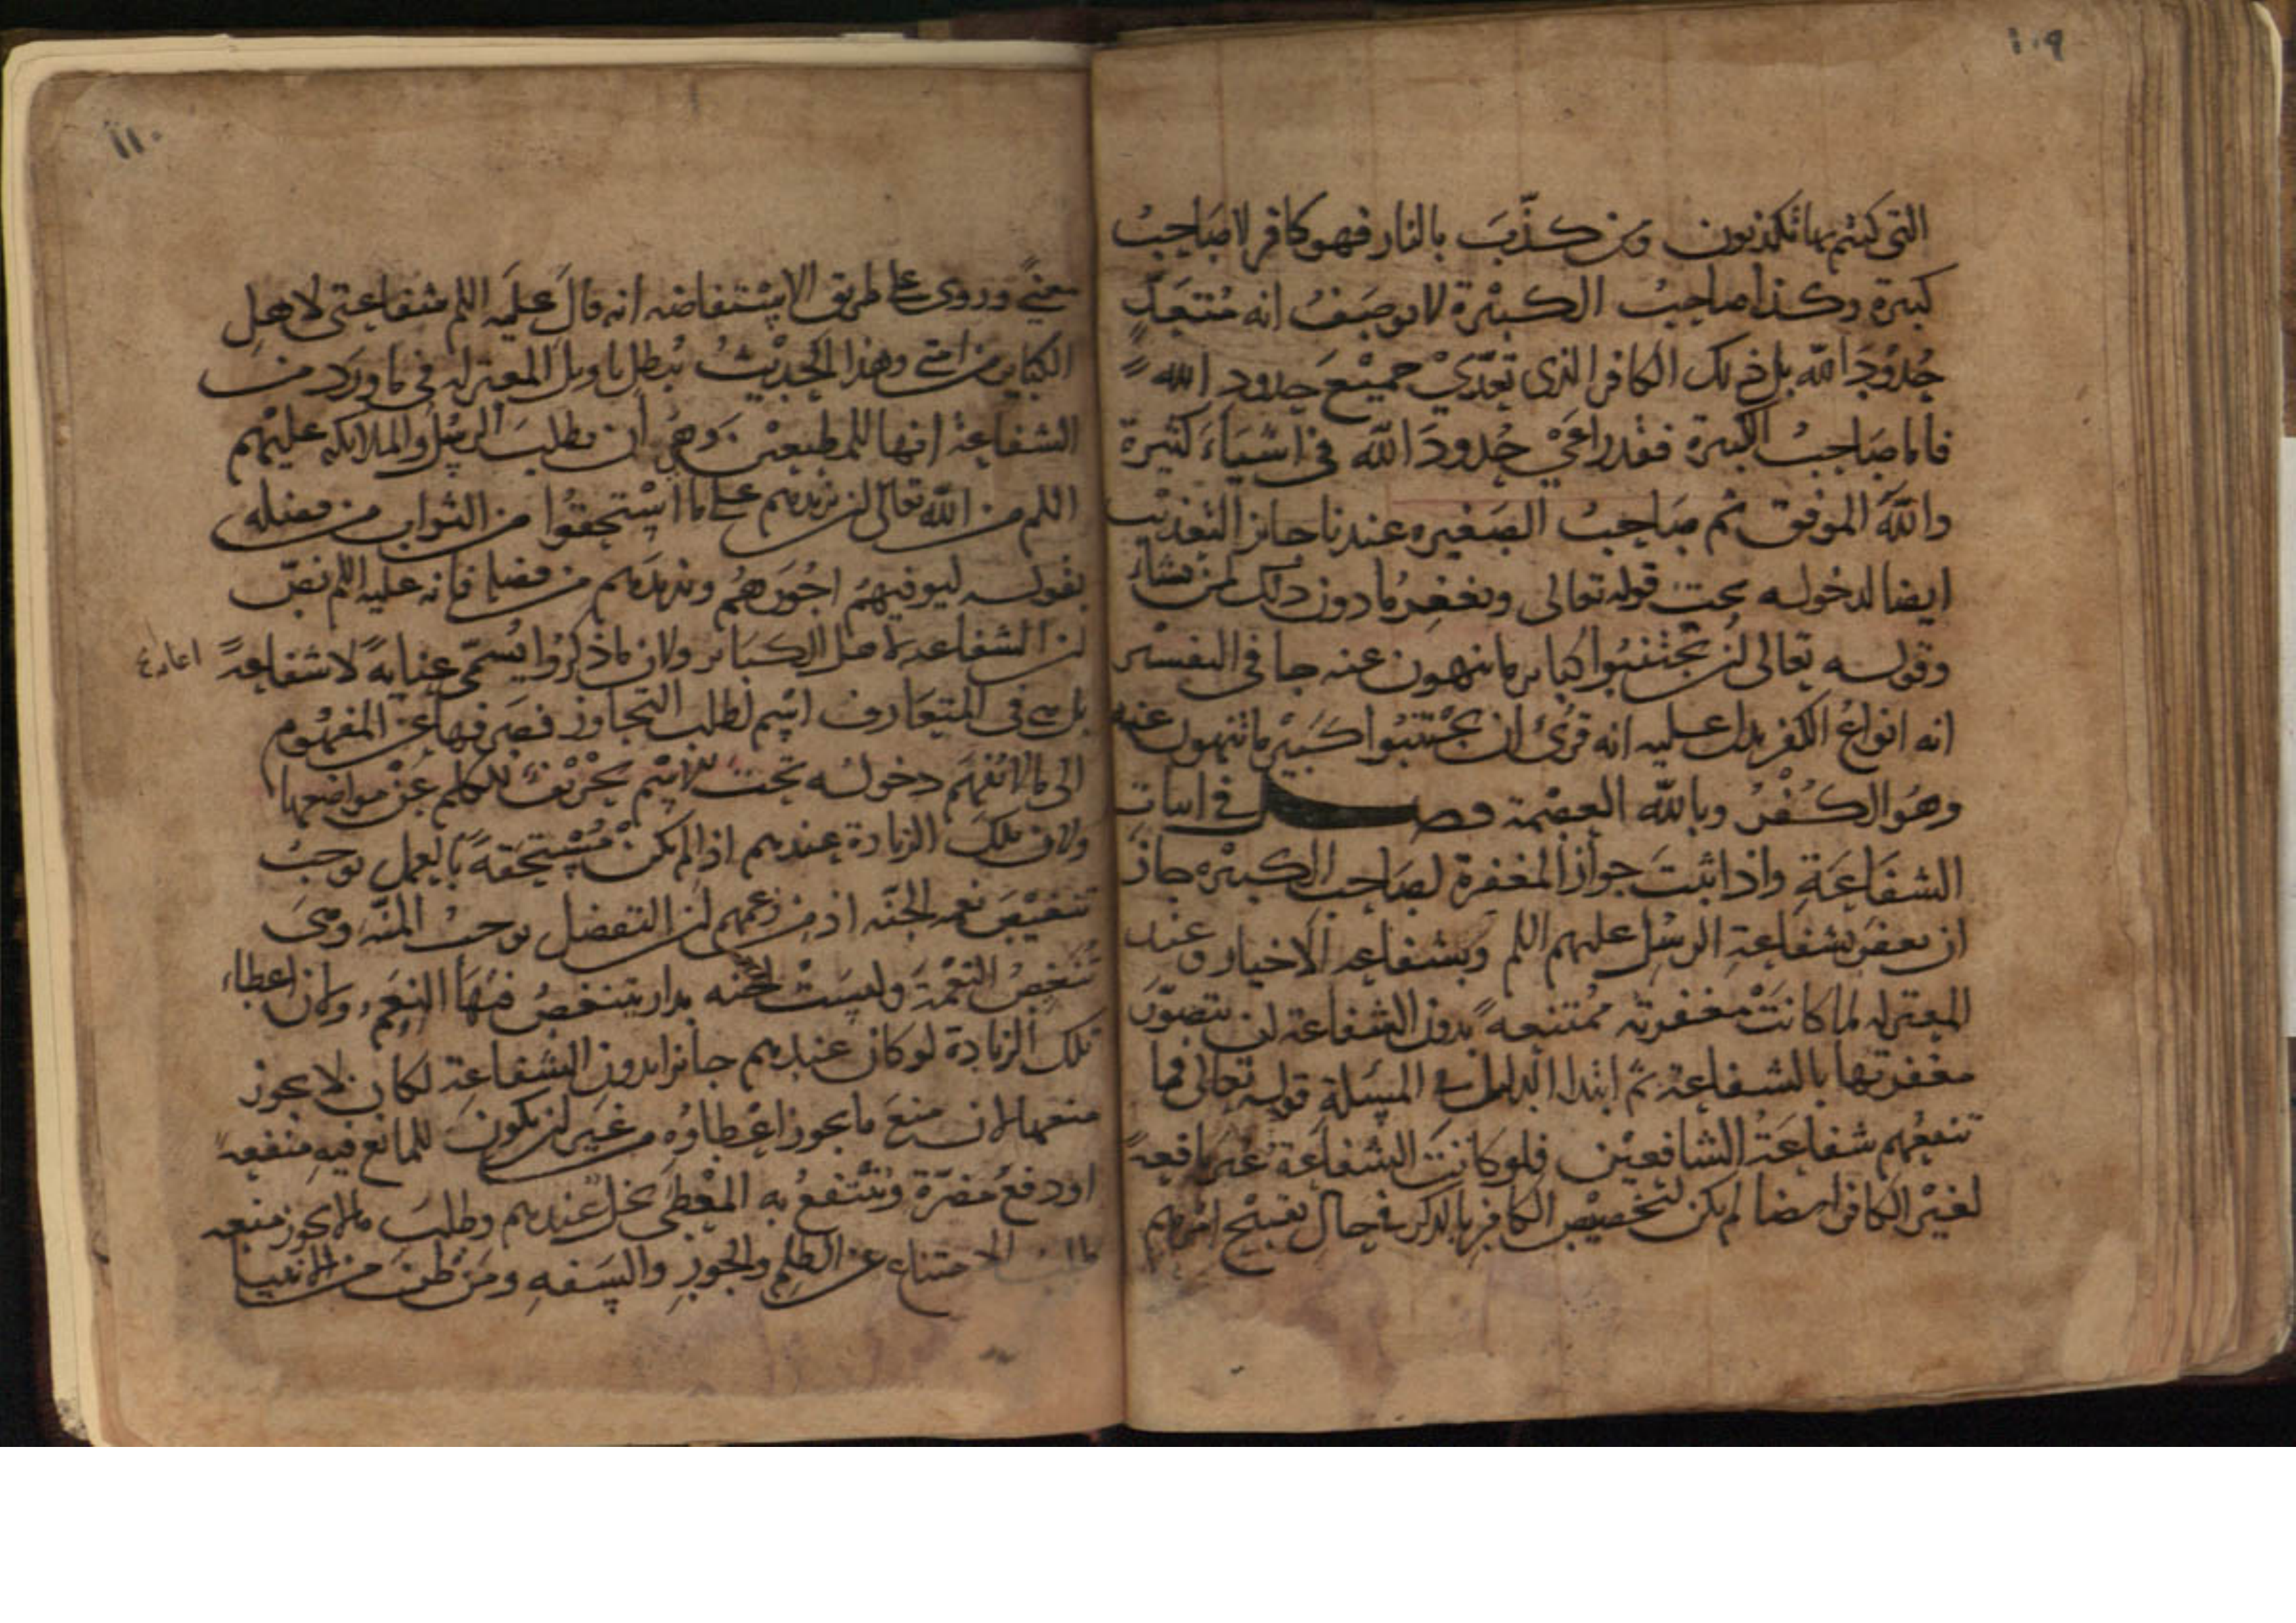 ١٠٩
التى كنتم بها تكذبون ومن كذّبَ بالنار فهو كافر لا صَاحِبُ
كبيرة وكذا صاحبُ الكبيْرة لا يوصَفُ انه مُتعَدّ
حُدُودَ الله بل ذلك الكافر الذى تعدّيْ جميْعَ حدود الله
فاما صَاحبُ الكبيرة فقد راعَيْ حُدودَ الله فى اشيَاءَ كثيرة
والله الموفق ثم صَاحِبُ الصَغيره عندنا جايز التعذيْب
ايضا لدخوله تحت قوله تعالى ويغفِرُ ما دون ذلك لمن يشاءُ
وقوله تعالى ان تجْتنبُوا كباير ما تنهون عنه جا فى التفسْير
انه انواعُ الكفر يدل عليه انه قرئ ان تجْتنبُوا كبيْر ما تنهون عنه
وهُوَ الكُفْرُ وبالله العصْمة فصل فى اثبات
الشفَاعَةِ واذا ثبتَ جوازُ المغفرة لصَاحب الكبيْره جازَ
ان يغفرَ بشفَاعةِ الرسُل عليهم اللم وبشفاعه الاخيار وعند
المعتزله لما كانَتْ مغفرته ممتنعهً بدون الشفاعة لن يتصوّرَ
مغفرتها بالشفاعة ثمّ ابتدا الدليل فى المسَلة قوله تعالى فما
تنفعُهم شفاعَةُ الشافعيْن فلو كانتَ الشفاعَة غيْر نافعةً
لغيْر الكافر ايضا لم يكن لتخصيْص الكافر بالذكر فى حال تقبيْح امرهم
١١٠
معنيً وروى على طريق الاسْتفاضه انه قالَ عليَه اللم شفاعتى لاهل
الكباير من امتى وهذا الحديْثُ يُبطل تاويل المعتزله فى ما ورَد من
الشفاعة انها للمطيعيْن وهى ان يطلبَ الرسُل والملايكه عليهْم
اللم من الله تعالى ان يزيدهم على ما اسْتحقوُا من الثواب من فضله
بقوله ليوفيهمُ اجُورَهُم ويزيدَهم من فضله فانه عليه اللم نصّ
ان الشفاعه لاهل الكبَاير ولان ما ذكرُوا يُسمّى عنايةً لا شفاعةً
اعانة
بل هى فى المتعَارف اسْم لطلب التجاوز فصَرفها عن المفهُوم
الى ما لا يُفهَم دخولُه تحت الاسْم تحْريْفٌ للكلم عنْ مواضعها
ولان تلكَ الزيادة عندهم اذا لم يكنْ مُسْتحقهً بالعمل يوجبُ
تنغيْصَ نعم الجنّه اذ من زعمهم ان التفضل يوجبُ المنّه وهىَ
تنغيصُ النعْمَة وليسَتْ الجنّه بدار يتنغصُ فيْهَا النِعَم ولان اعطاءَ
تلك الزيادة لو كان عندهم جايزا بدون الشفاعة لكان لا يجوز
منعها لان منعَ ما يجوز اعْطاوُه من غيَر ان يكونَ للمانع فيهِ منفعةً
او دفعُ مضرّة ويَنْتفعُ به المعْطَى بخلٌ عندهم وطلبُ ما لا يجوز منعه
طلبُ الامتناع عن الظلم والجورِ والسَفهِ ومَن ظنّ من الانبيا